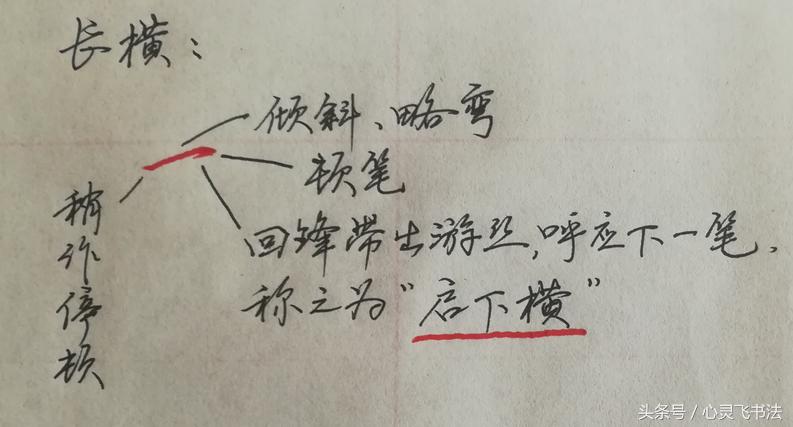 长横：
倾斜、略弯
顿笔
稍作停顿
回锋带出游丝，呼应下一笔，
称之为“启下横”
头条号／心灵飞书法